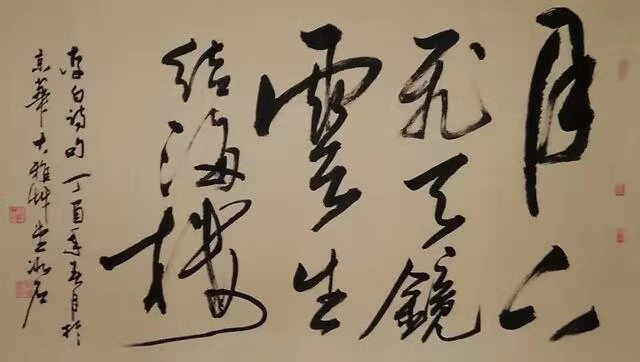 月下
飛天鏡
雲生
結海樓
李白詩句丁酉年五月於
京華大雅艸堂冰石